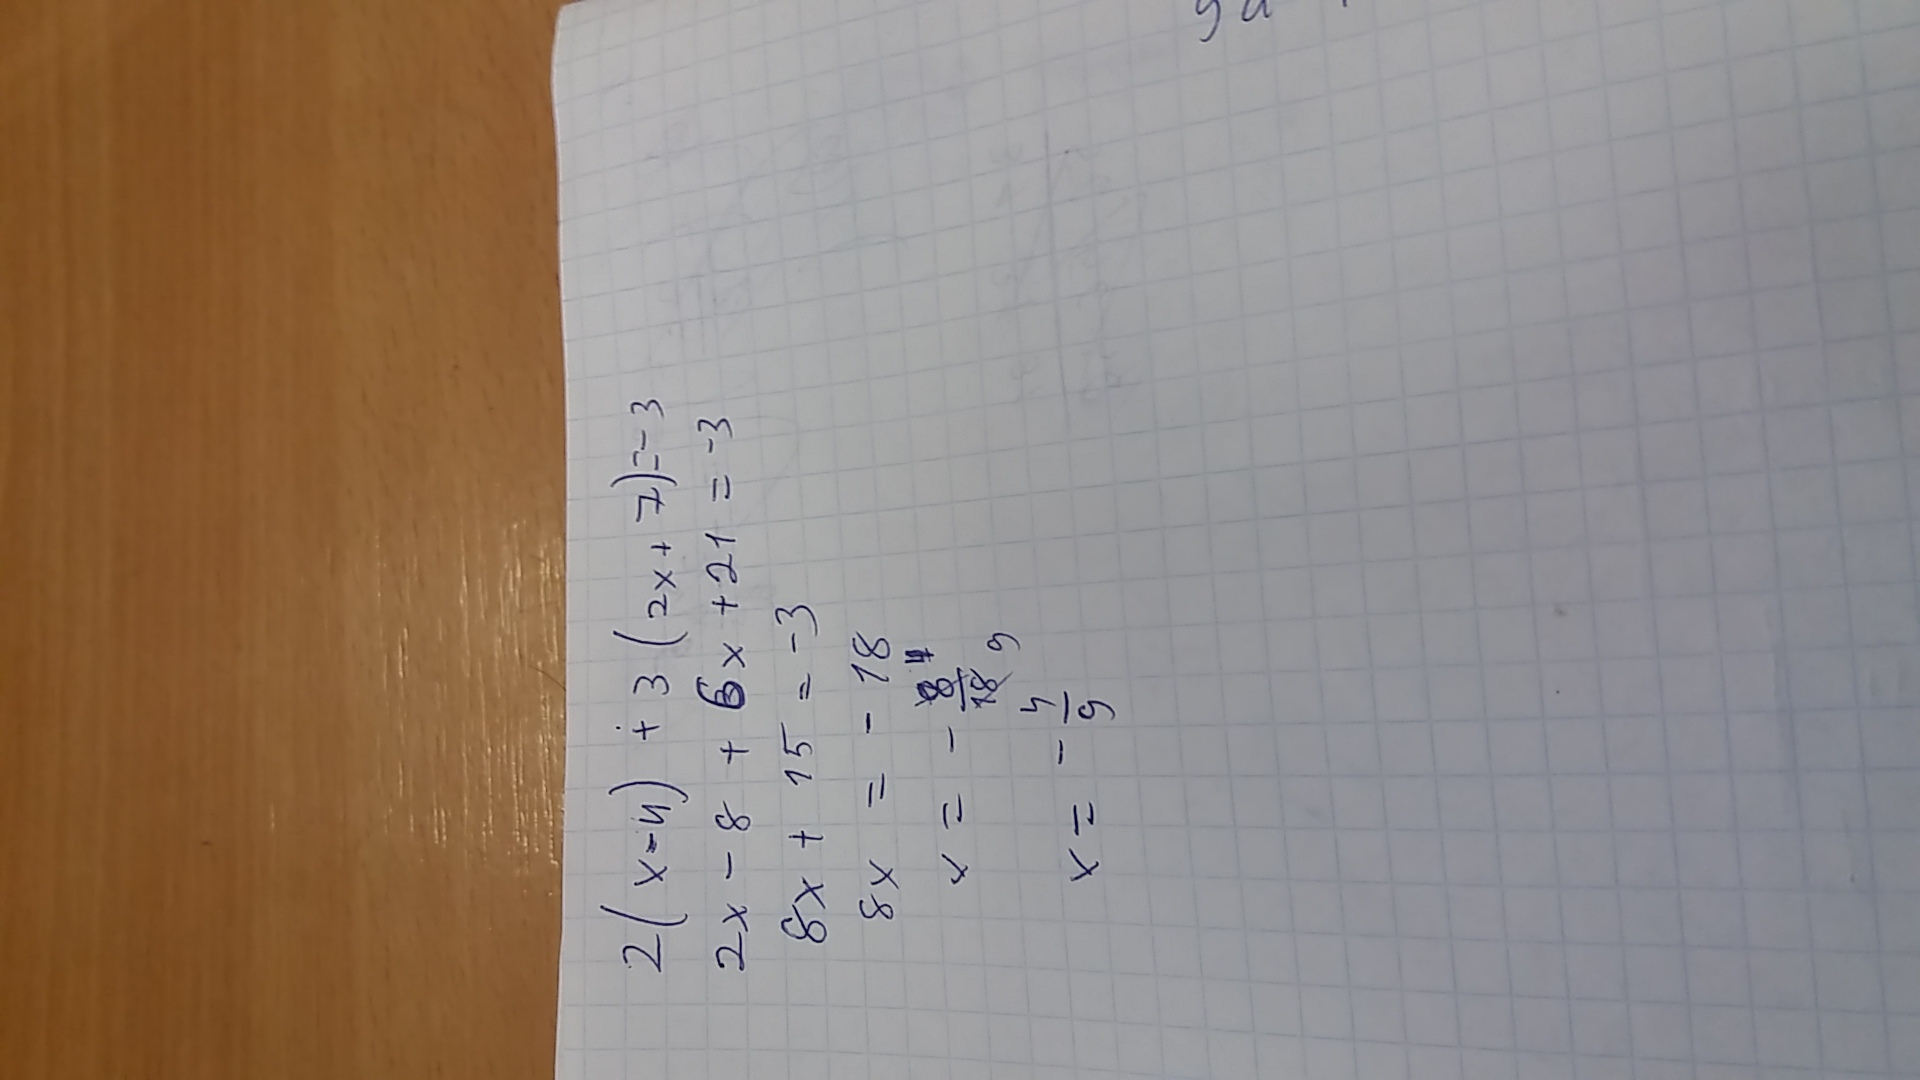 2(x-4) + 3(2x+7)=-3
2x - 8 + 6x + 21 = -3
8x + 15 = -3
8x = - 18
x = - 8/18 4 9
x = - 4/9